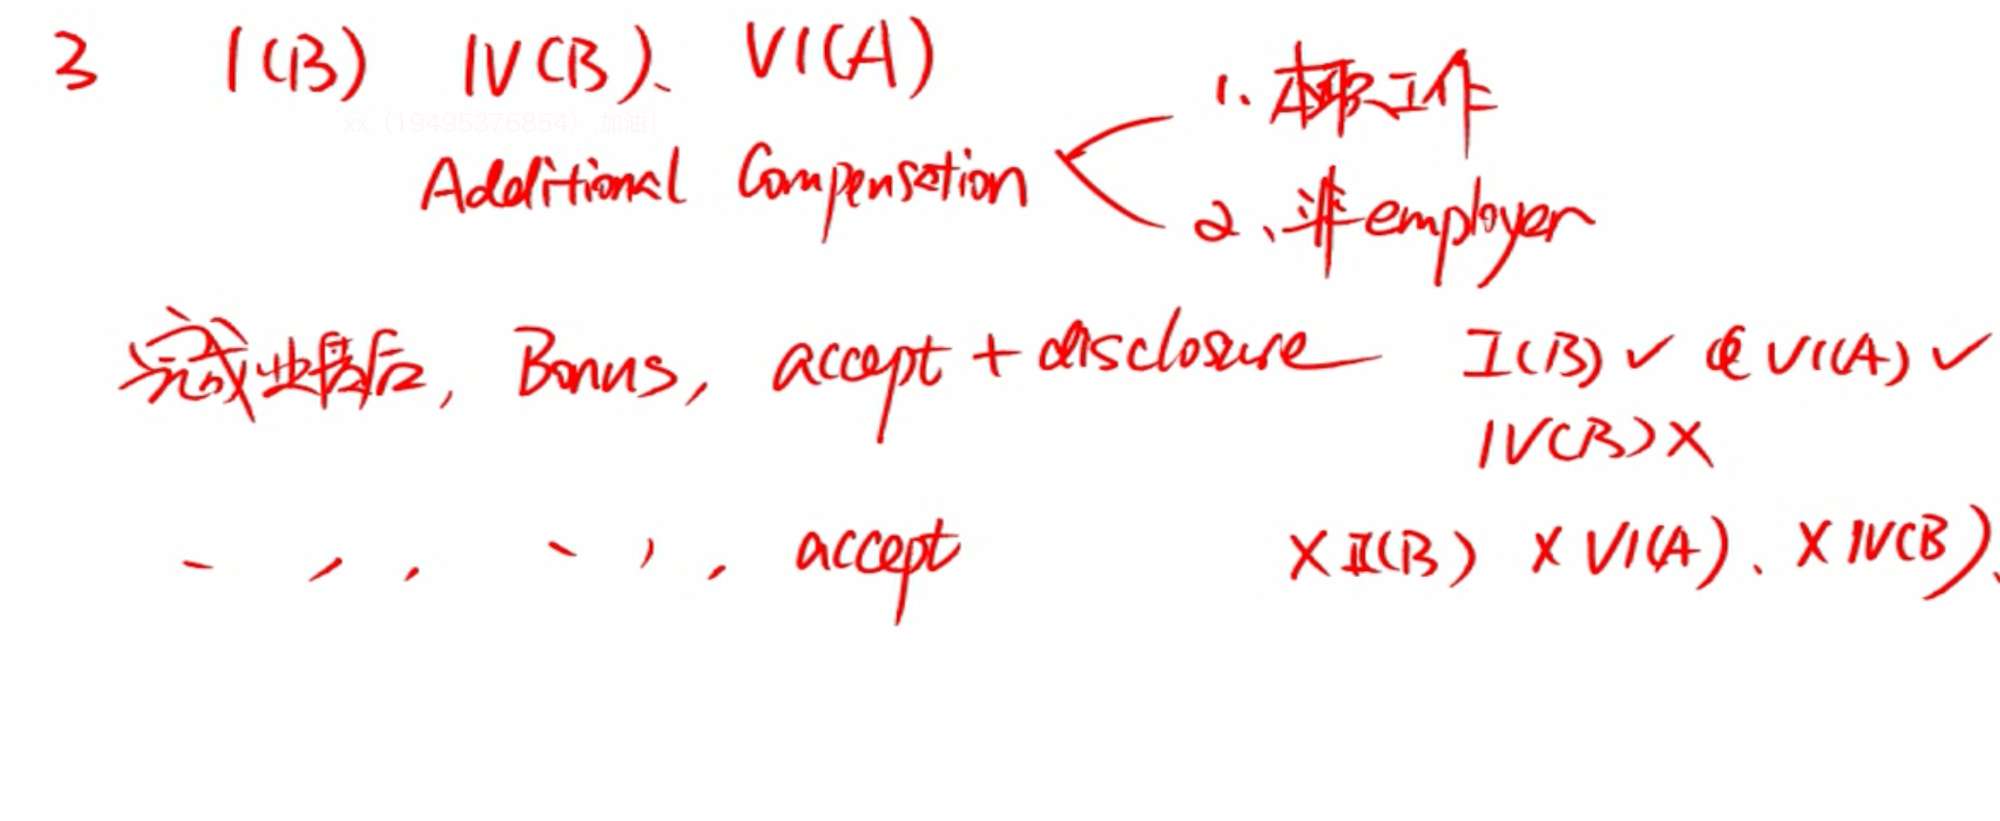 3 I(B) IV(B)、 VI(A)
1. 本职工作
Additional Compensation
2、非employer
完成业绩后, Bonus, accept + disclosure I(B) ✓ VI(A) ✓
IV(B) ×
accept × I(B) × VI(A)、 × IV(B)、